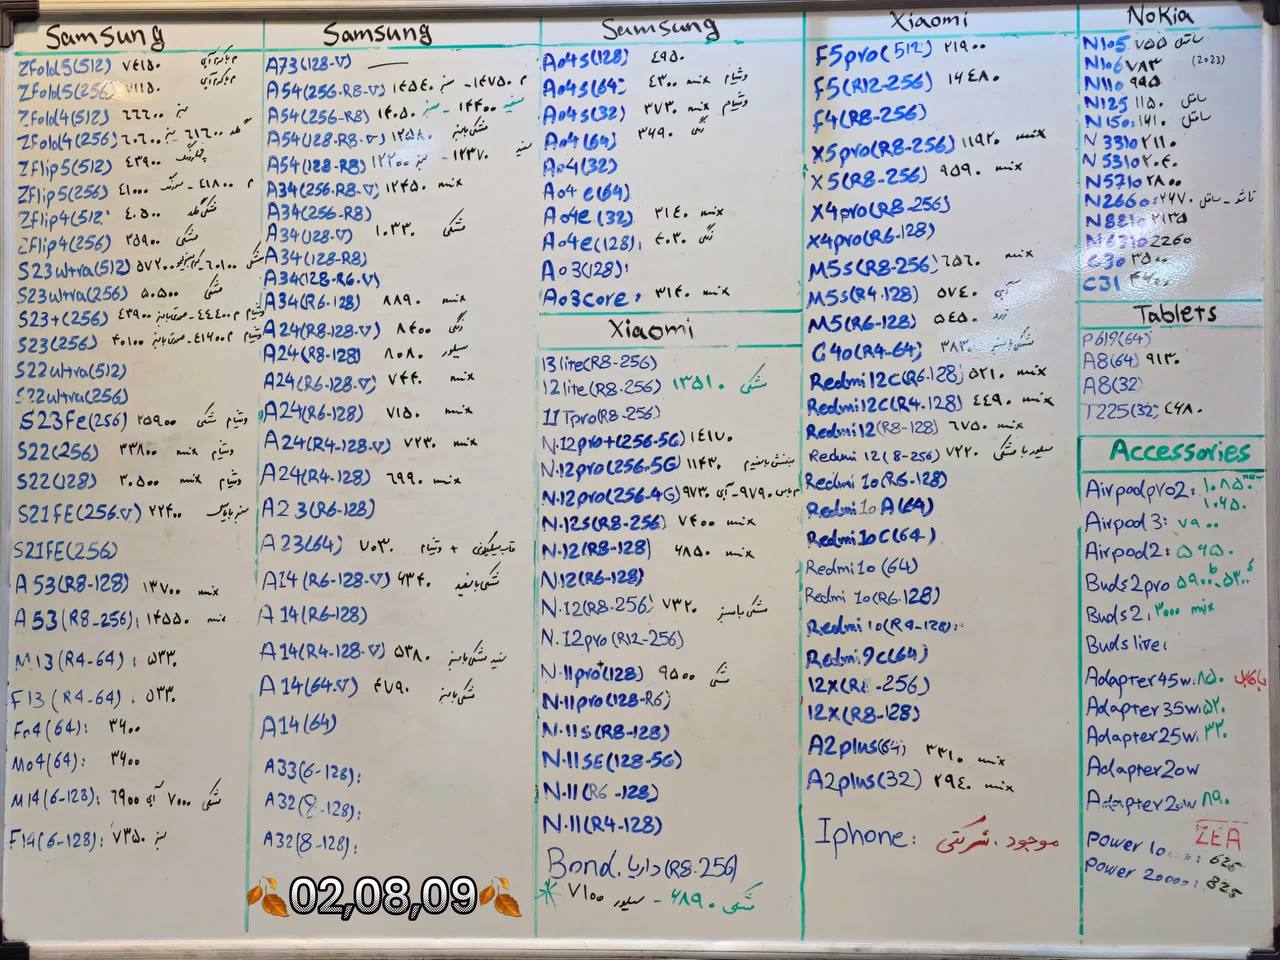 Samsung
ZFold5(512) ۷۴۱۵۰
ZFold5(256) ۷۱۱۵۰
ZFold4(512) ۶۶۶۰۰ سبز
ZFold4(256)
ZFlip5(512) ۴۳۹۰۰
ZFlip5(256) ۴۱۰۰۰ - ۴۱۸۰۰
ZFlip4(512) ۴۰۵۰۰
ZFlip4(256) ۳۵۹۰۰ مشکی
S23ultra(512) ۵۷۲۰۰ ۶۰۱۰۰ مشکی
S23ultra(256) ۵۰۵۰۰ مشکی
S23+(256) ۴۳۹۰۰ ۴۴۴۰۰ ویتنام
S23(256) ۴۰۱۰۰ ۴۱۶۰۰ ویتنام
S22ultra(512)
S22ultra(256)
S23Fe(256) ۲۵۹۰۰ مشکی ویتنام
S22(256) ۳۳۸۰۰ mix ویتنام
S22(128) ۳۰۵۰۰ mix ویتنام
S21FE(256.V) ۲۲۴۰۰
S21FE(256)
A53(R8-128) ۱۳۷۰۰ mix
A53(R8-256): ۱۴۵۵۰ mix
M13(R4-64): ۵۳۳۰
F13(R4-64): ۵۳۳۰
F04(64): ۳۹۰۰
M04(64): ۳۹۰۰
M14(6-128): ۶۹۰۰ آبی ۷۰۰۰ مشکی
F14(6-128): ۷۳۵۰ سبز
Samsung
A73(128-V) —
A54(256-R8-V) ۱۴۵۴۰ سبز - ۱۴۷۵۰
A54(256-R8) ۱۴۰۵۰ سبز - ۱۴۴۰۰ سفید
A54(128-R8-V) ۱۲۵۸۰
A54(128-R8) ۱۲۲۰۰ سبز - ۱۲۳۷۰ سفید
A34(256-R8-V) ۱۲۴۵۰ mix
A34(256-R8)
A34(128-V) ۱۰۳۳۰ مشکی
A34(128-R8)
A34(128-R6-V)
A34(R6-128) ۸۸۹۰ mix
A24(R8-128-V) ۸۴۰۰
A24(R8-128) ۸۰۸۰ سیلور
A24(R6-128-V) ۷۴۴۰ mix
A24(R6-128) ۷۱۵۰ mix
A24(R4-128-V) ۷۲۳۰ mix
A24(R4-128) ۶۹۹۰ mix
A23(R6-128)
A23(64) ۷۰۳۰ ویتنام + قاب سیلیکونی
A14(R6-128-V) ۶۳۴۰ مشکی یا سفید
A14(R6-128)
A14(R4-128-V) ۵۳۸۰ سفید مشکی یا سبز
A14(64.V) ۴۷۹۰ مشکی یا سبز
A14(64)
A33(6-128):
A32(8-128):
A32(8-128):
02,08,09
Samsung
A04s(128) ۴۹۵۰
A04s(64) ۴۳۰۰ mix ویتنام
A04s(32) ۳۷۳۰ mix ویتنام
A04(64) ۳۶۹۰
A04(32)
A04e(64)
A04e(32) ۳۱۴۰ mix
A04e(128): ۴۰۳۰
A03(128):
A03core: ۳۱۴۰ mix
Xiaomi
13lite(R8-256)
12lite(R8-256) ۱۳۵۱۰ مشکی
11Tpro(R8-256)
N.12pro+(256-5G) ۱۴۱۷۰
N.12pro(256.5G) ۱۱۴۳۰
N.12pro(256-4G) ۹۷۳۰ آبی - ۹۷۹۰
N.12s(R8-256) ۷۴۰۰ mix
N.12(R8-128) ۶۸۵۰ mix
N.12(R6-128)
N.12(R8-256) ۷۳۲۰ مشکی یا سبز
N.12pro(R12-256)
N.11pro+(128) ۹۵۰۰ مشکی
N.11pro(128-R6)
N.11s(R8-128)
N.11SE(128-5G)
N.11(R6-128)
N.11(R4-128)
Bond. داریا (R8.256)
۷۱۰۰ سیلور - ۶۸۹۰ مشکی
Xiaomi
F5pro(512) ۲۱۹۰۰
F5(R12-256) ۱۴۴۸۰
F4(R8-256)
X5pro(R8-256) ۱۱۹۲۰ mix
X5(R8-256) ۹۵۹۰ mix
X4pro(R8-256)
X4pro(R6-128)
M5s(R8-256) ۶۵۶۰ mix
M5s(R4.128) ۵۷۴۰ آبی
M5(R6-128) ۵۴۵۰ زرد
C40(R4-64) ۳۸۳۰ مشکی یا سبز
Redmi12C(R6-128) ۵۲۱۰ mix
Redmi12C(R4-128) ۴۴۹۰ mix
Redmi12(R8-128) ۶۷۵۰ mix
Redmi 12(8-256) ۷۲۲۰ سیلور یا مشکی
Redmi 10(R6-128)
Redmi10A(64)
Redmi10C(64)
Redmi10(64)
Redmi 10(R6-128)
Redmi 10(R4-128):
Redmi9C(64)
12X(R8-256)
12X(R8-128)
A2plus(64) ۳۳۱۰ mix
A2plus(32) ۲۹۴۰ mix
Iphone: موجود . شرکتی
Nokia
N105 ۷۵۵
N106 ۷۸۳ (2023)
N110 ۹۹۵
N125 ۱۱۵۰
N150: ۱۴۱۰
N3310 ۲۱۱۰
N5310 ۲۰۴۰
N5710 ۲۸۰۰
N2660: ۲۴۷۰
N8210 ۲۱۳۵
N6310 2260
C30 ۳۵۰۰
C31
Tablets
P619(64)
A8(64) ۹۱۳۰
A8(32)
T225(32) ۶۴۸۰
Accessories
Airpodpro2: ۱۰۸۵۰ new
۱۰۴۵۰
Airpod3: ۷۹۰۰
Airpod2: ۵۴۵۰
Buds2pro ۵۹۰۰
Buds2: ۳۰۰۰ mix
Buds live:
Adapter45w: ۸۵۰ با کابل
Adapter35w: ۵۲۰
Adapter25w: ۳۳۰
Adapter20w
Adapter20w ۸۹۰
ZEA
Power 10000: 625
Power 20000: 825